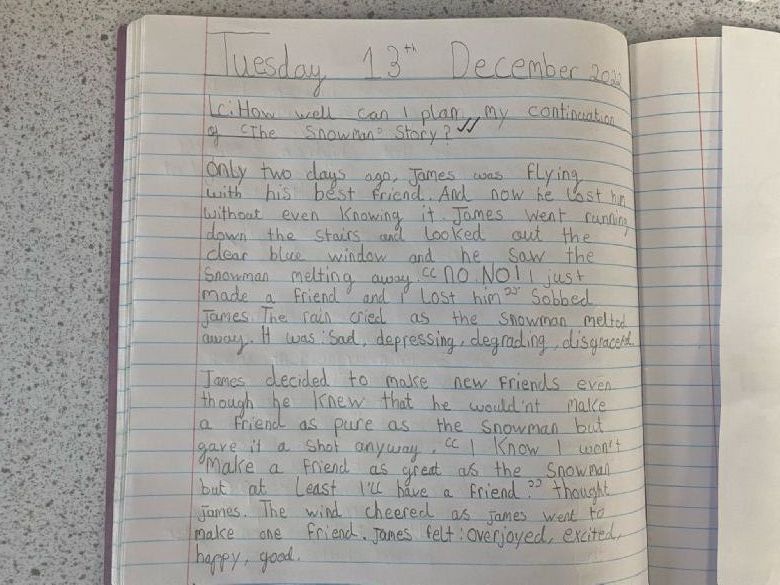 Tuesday 13th December 2022
Lc: How well can I plan my continuation
of "The Snowman" Story?
Only two days ago, James was flying
with his best friend. And now he lost him
without even knowing it. James went running
down the stairs and looked out the
clear blue window and he saw the
Snowman melting away. "NO NO! I just
made a friend and I lost him" Sobbed
James. The rain cried as the snowman melted
away. It was: Sad, depressing, degrading, disgraced.
James decided to make new friends even
though he knew that he would'nt make
a friend as pure as the snowman but
gave it a shot anyway. "I know I won't
make a friend as great as the Snowman
but at least I'll have a friend." thought
James. The wind cheered as James went to
make one friend. James felt: overjoyed, excited,
happy, good.